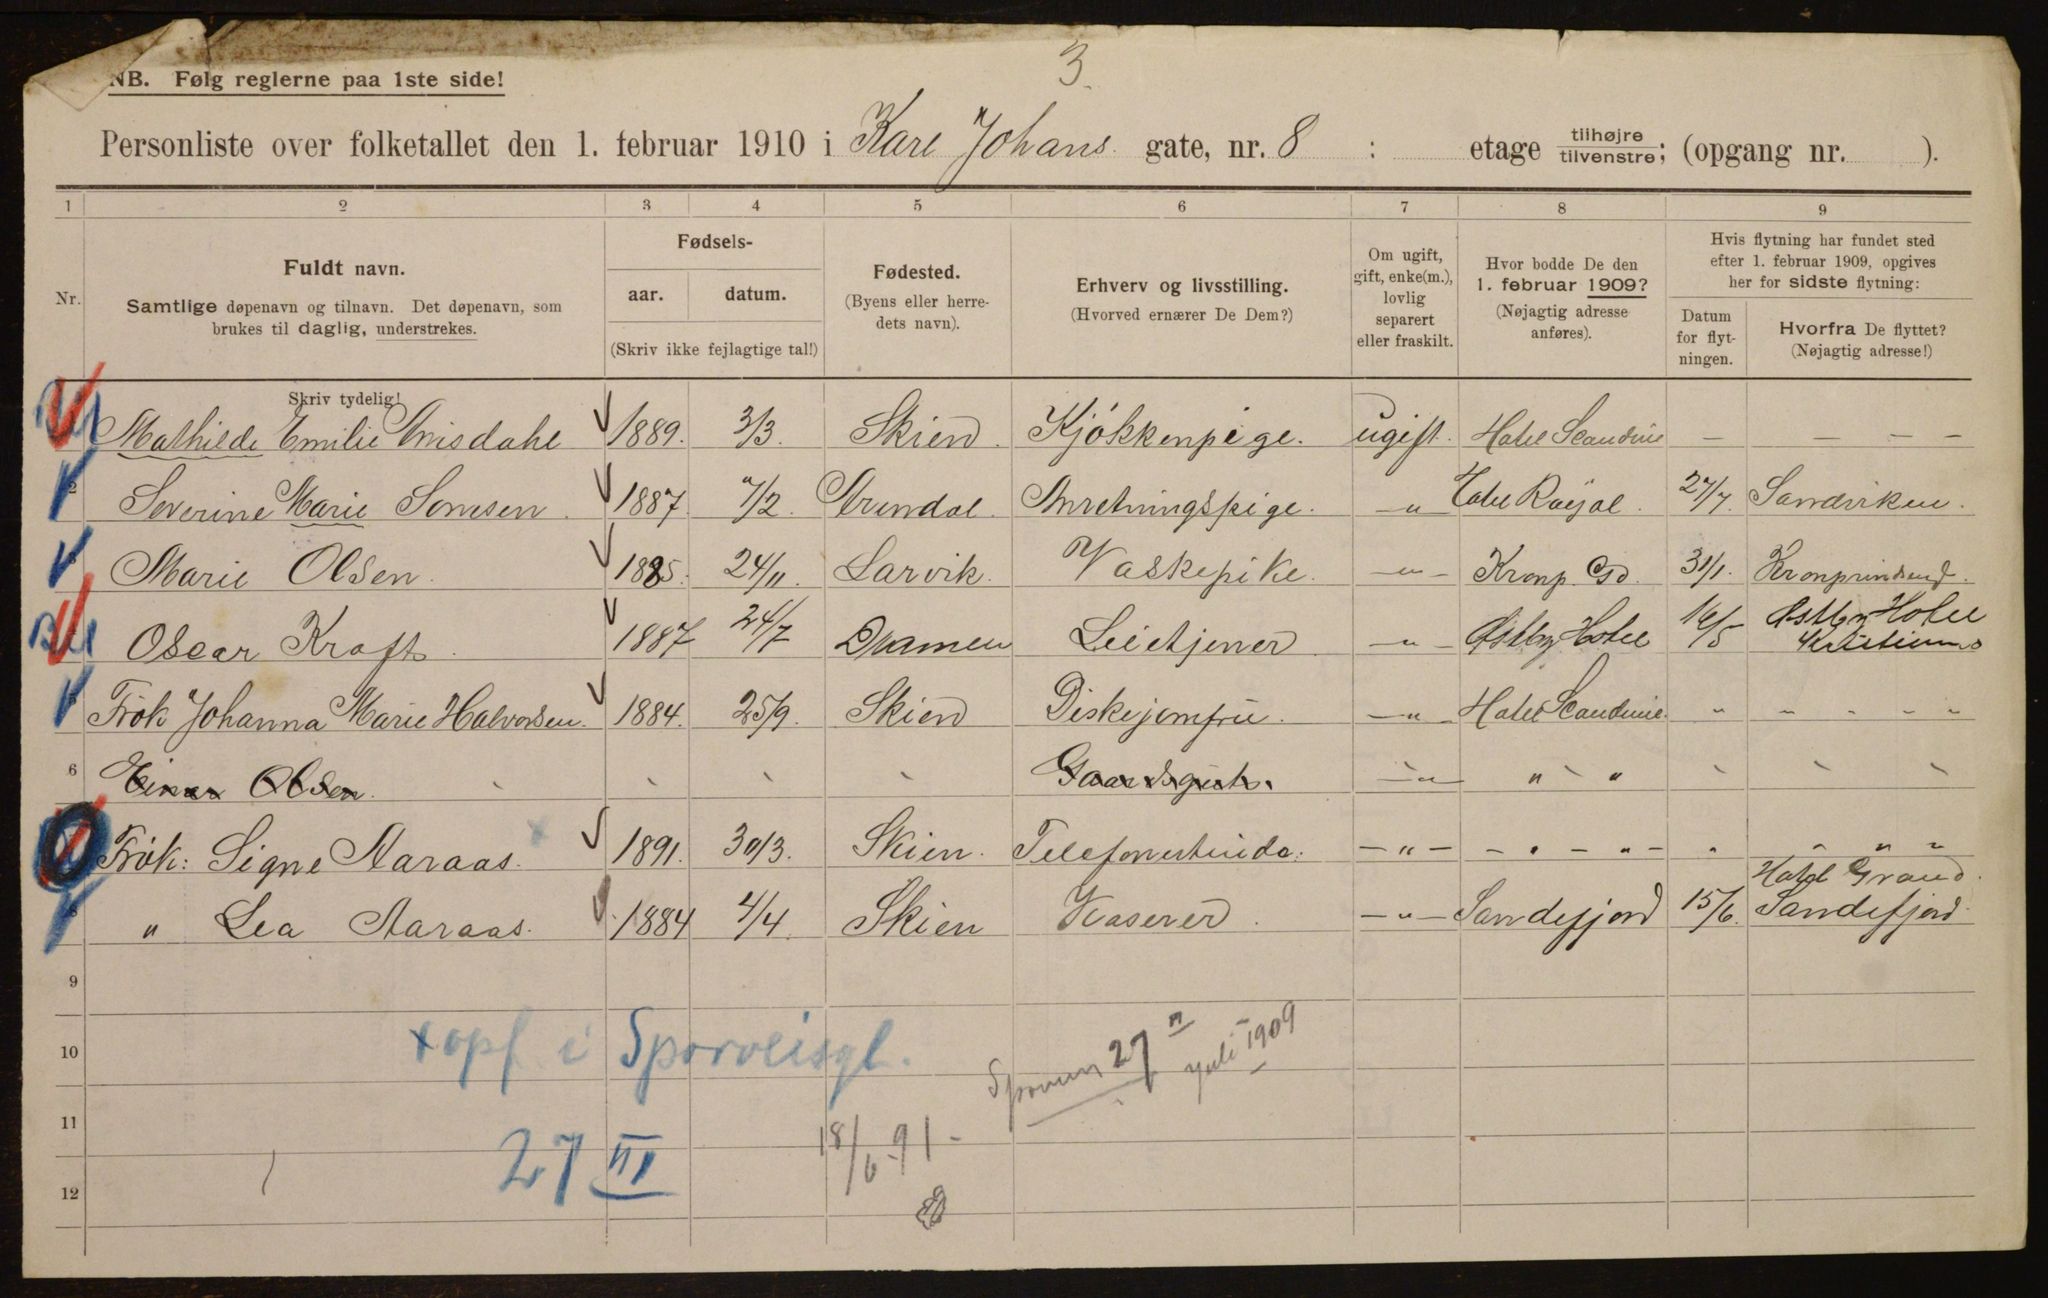 3
NB. Følg reglerne paa 1ste side!
Personliste over folketallet den 1. februar 1910 i Karl Johans gate, nr. 8 : etage tilhøjre tilvenstre; (opgang nr. ).
1 2 3 4 5 6 7 8 9
Nr.
Fuldt navn.
Samtlige døpenavn og tilnavn. Det døpenavn, som
brukes til daglig, understrekes.
Fødsels-
aar. datum.
(Skriv ikke fejlagtige tal!)
Fødested.
(Byens eller herre-
dets navn).
Erhverv og livsstilling.
(Hvorved ernærer De Dem?)
Om ugift,
gift, enke(m.),
lovlig
separert
eller fraskilt.
Hvor bodde De den
1. februar 1909?
(Nøjagtig adresse
anføres).
Hvis flytning har fundet sted
efter 1. februar 1909, opgives
her for sidste flytning:
Datum
for flyt-
ningen.
Hvorfra De flyttet?
(Nøjagtig adresse!)
Skriv tydelig!
Mathilde Emilie 1889. 3/3. Skien. Kjøkkenpige. ugift. Hotel Scandinie — — — —
2 Severine Marie 1887. 7/2. Arendal. Anretningspige. —"— Hotel Røyal. 27/7. Sandviken.
Marie Olsen. 1885. 24/11. Larvik. Vaskepike. —"— Kronp. Gd. 31/1. Kronprindsend.
Oscar Kraft. 1887 24/7 Dramen Leietjener —"— Østby Hotel 16/5 Østby Hotel
Frøk Johanna Marie Halvorsen. 1884. 25/9. Skien Diskejomfru. —"— Hotel Scandinie. " " " " "
6 Einar Olsen. —"— " "
Frøk: Signe Aaraas. 1891. 30/3. Skien. Telefonistinde. —"— — " — " — " " " "
Hotel Grand.
8 " Lea Aaraas. 1884 4/4. Skien Kaserer. —"— Sandefjord 15/6. Sandefjord.
9
10
11
12
xopf i Sporveisgt.
27 III
27 Juli 1909
18/6-91-